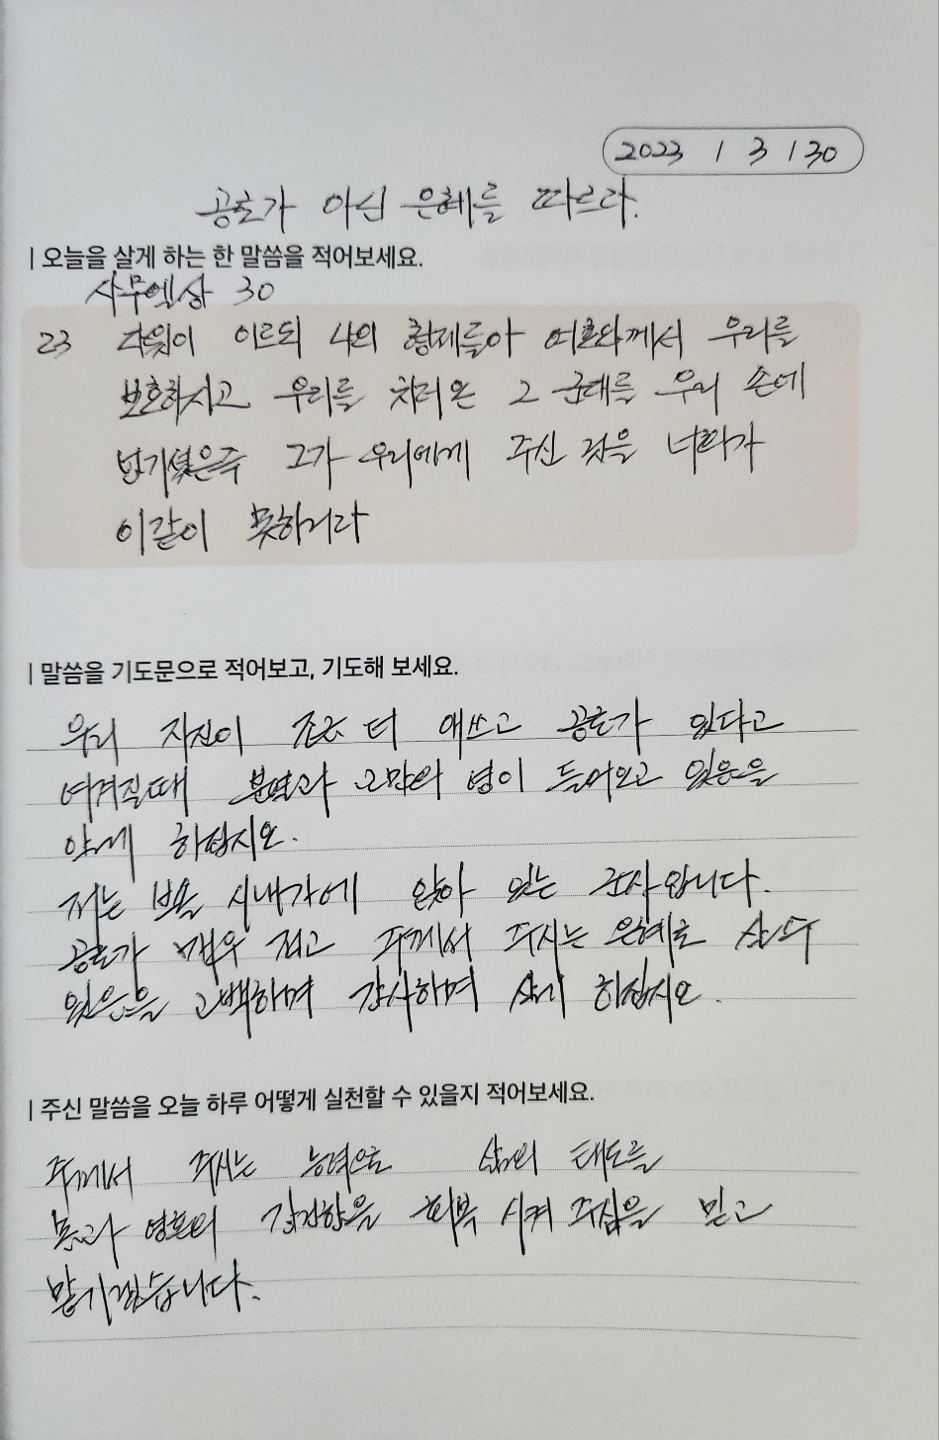 2023 / 3 / 30
공로가 아신 은혜를 따르라.
| 오늘을 살게 하는 한 말씀을 적어보세요.
사무엘상 30
23 다윗이 이르되 나의 형제들아 여호와께서 우리를
보호하시고 우리를 치러 온 그 군대를 우리 손에
넘기셨은즉 그가 우리에게 주신 것을 너희가
이같이 못하리라
| 말씀을 기도문으로 적어보고, 기도해 보세요.
우리 자신이 조금 더 애쓰고 공로가 있다고
여겨질때 분열과 교만의 영이 들어오고 있음을
알게 하십시오.
저는 브솔 시내가에 앉아 있는 군사입니다.
공로가 매우 적고 주께서 주시는 은혜로 산 자
있음을 고백하며 감사하며 살게 하십시오.
| 주신 말씀을 오늘 하루 어떻게 실천할 수 있을지 적어보세요.
주께서 주시는 능력으로 삶의 태도를
몸과 영혼의 강건함을 회복 시켜 주심을 믿고
맡기겠습니다.